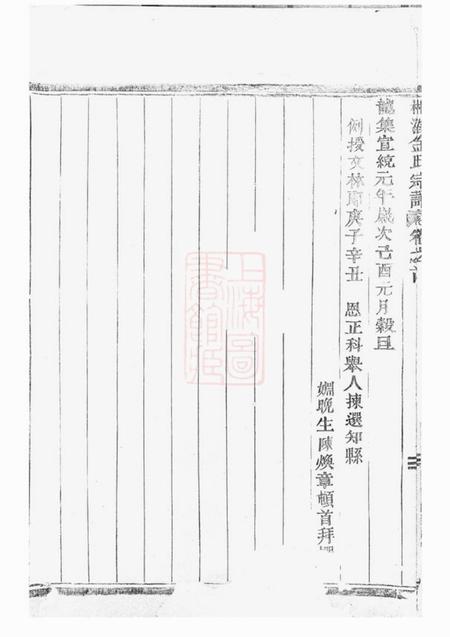 龍集宣統元年歲次己酉元月穀旦
例授文林郎庚子辛丑 恩正科舉人揀選知縣
姻晚生陳煥章頓首拜
金氏宗譜
上海圖書館藏